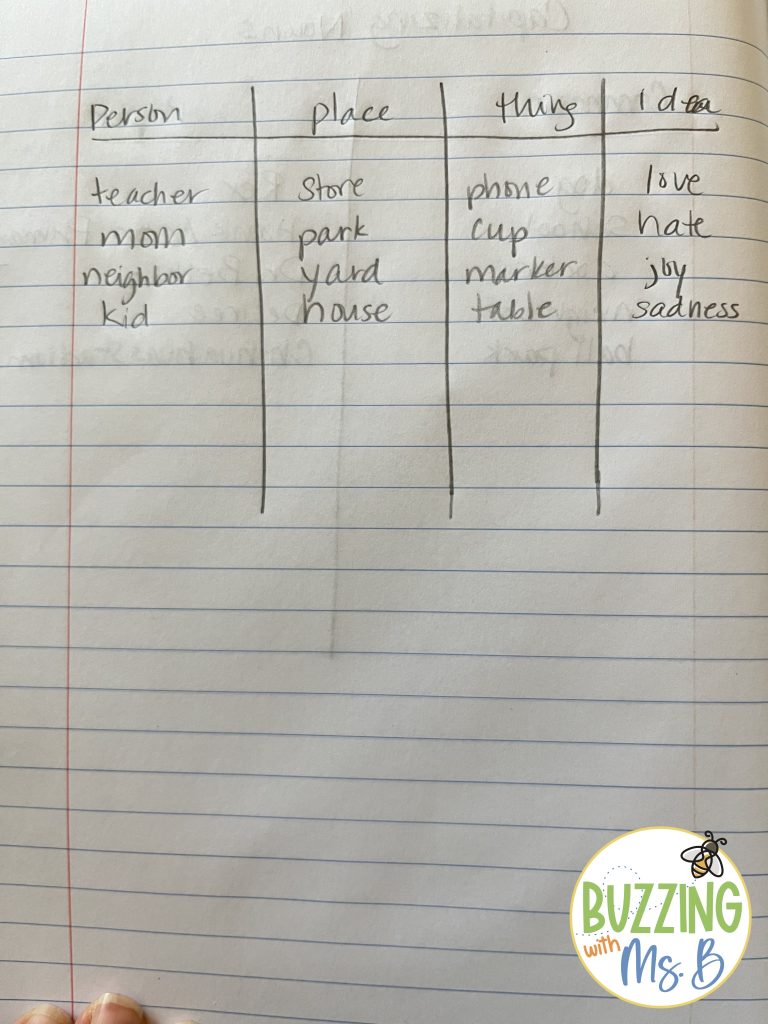 Person place thing Idea
teacher store phone love
mom park cup hate
neighbor yard marker joy
kid house table sadness
BUZZING
with
Ms. B